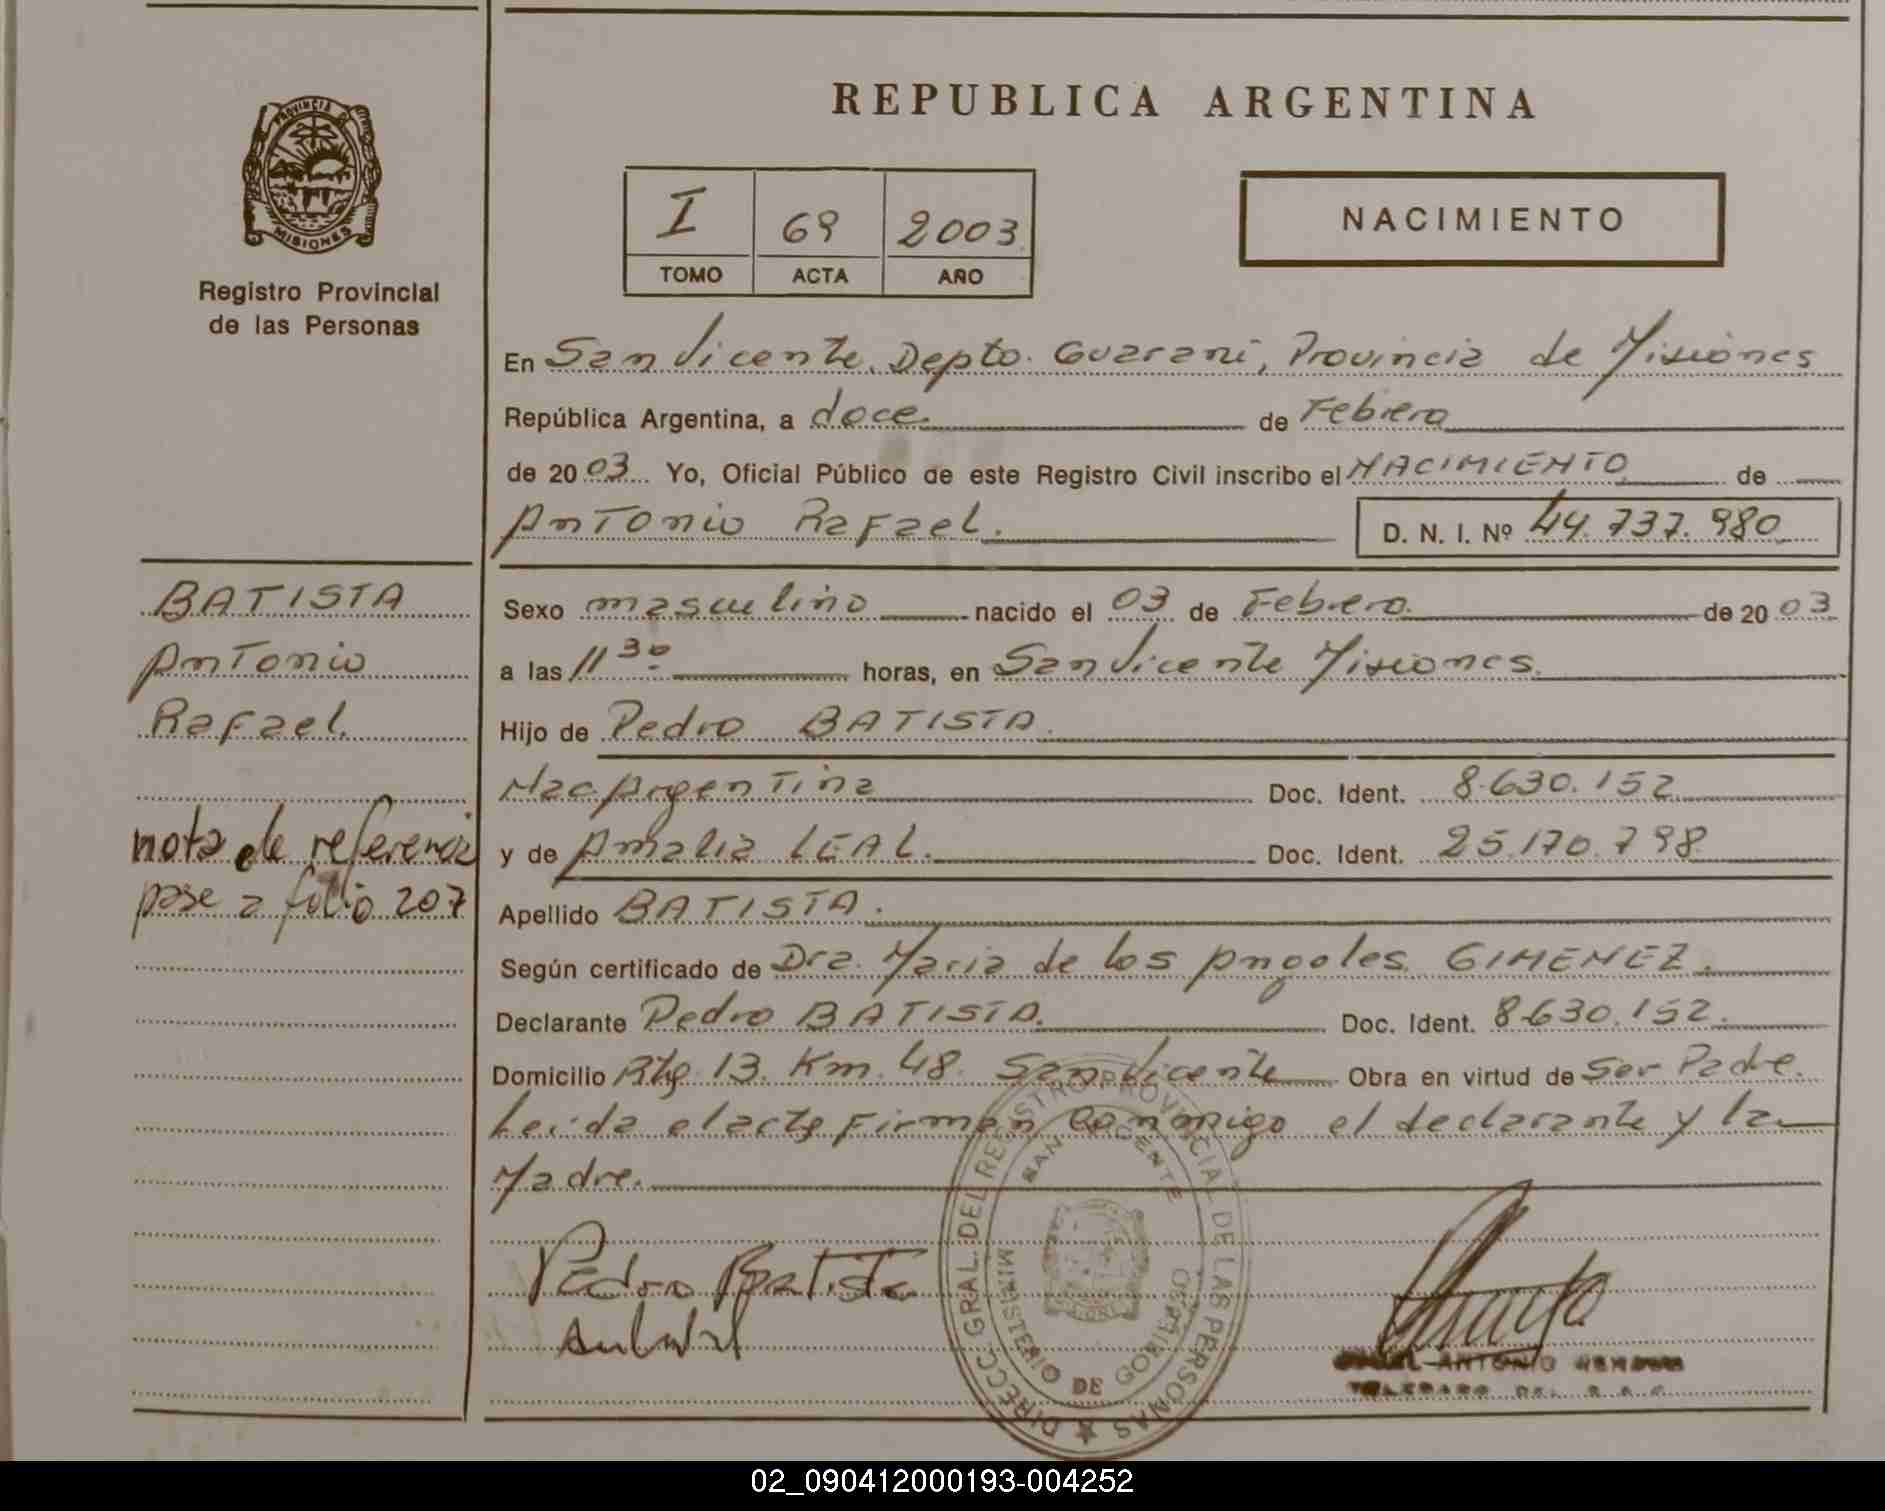 REPUBLICA ARGENTINA
PROVINCIA DE
MISIONES
Registro Provincial
de las Personas
I 69 2003
TOMO ACTA AÑO
NACIMIENTO
En San Vicente, Depto. Guarani, Provincia de Misiones
República Argentina, a doce de Febrero
de 2003 Yo, Oficial Público de este Registro Civil inscribo el NACIMIENTO de
Antonio Rafael. D. N. I. Nº 44.737.980
BATISTA
Antonio
Rafael
nota de referencia
pase a folio 207
Sexo masculino nacido el 03 de Febrero de 2003
a las 11 30 horas, en San Vicente Misiones.
Hijo de Pedro BATISTA.
Nac Argentina Doc. Ident. 8.630.152
y de Amalia LEAL. Doc. Ident. 25.170.798
Apellido BATISTA.
Según certificado de Dra. Maria de los Angeles GIMENEZ.
Declarante Pedro BATISTA. Doc. Ident. 8630.152.
Domicilio Rta 13. Km. 48. San Vicente Obra en virtud de Ser Padre.
Leida el acta Firman Conmigo el declarante y la
Madre.
Pedro Batista
DIRECC. GRAL. DEL REGISTRO PROVINCIAL DE LAS PERSONAS
SAN VICENTE
MINISTERIO DE GOBIERNO
ANTONIO
02_090412000193-004252